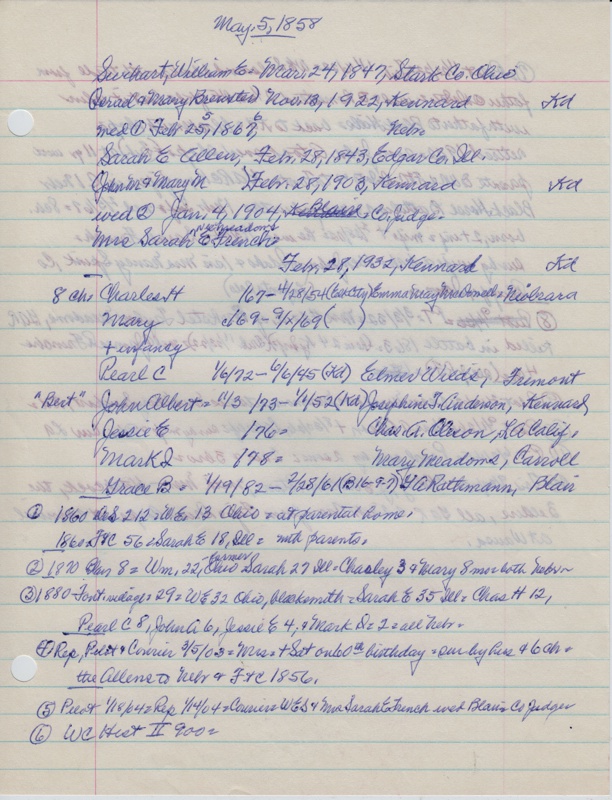 May 5, 1858
Swihart, William E = Mar. 24, 1847, Stark Co. Ohio
& Mary Nov. 13, 1922, Kennard Kd
wed ① Feb. 25, 1867, Nebr.
Sarah E Allen, Feb. 28, 1843, Edgar Co. Ill.
(John M & Mary M ) Feb. 28, 1903, Kennard Kd
wed ② Jan. 4, 1904, Blair Co. judge.
Mrs Sarah E French = Meadows
Feb. 28, 1932, Kennard Kd
8 ch = Charles H '67 - 4/28/54 Emma May McDonell = Niobrara
Mary '69 - 9/x/69 ( )
+ infancy
Pearl C 1/6/72 - 6/6/45 (Kd) Elmer Wilds, Fremont
"Bert" John Albert = 11/3/73 - 1/1/52 (Kd) Josephine F. Anderson, Kennard
Jessie E '76 = Chas. A. Olvson, LA Calif.
Mark D '78 = Mary Meadows, Carroll
Grace B = 1/19/82 - 2/28/61 (B 16-9-7) Rathmann, Blair
① 1860 212 = WE 13 Ohio = at parental home.
1860 = Ft C 56 = Sarah E 18, Ill = with parents.
② 1870 8 = Wm. 22, farmer Ohio Sarah 27 Ill = Charley 3 & Mary 8 mo both Nebr =
③ 1880 Font. village = 29 = WE 32 Ohio, blacksmith = Sarah E 35 Ill = Chas H 12,
Pearl C 8, John A 6, Jessie E 4, & Mark D = 2 = all Nebr =
④ Rep, Pilot & Courier 3/5/03 = Mrs = + Sat on 60th birthday = sur by hus & 6 ch =
the Allens to Nebr & Ft C 1856.
⑤ Pilot 1/18/04 = Rep 1/14/04 = Courier = W E S & Mrs Sarah E French wed Blair = Co judge
⑥ WC Hist II 900 =